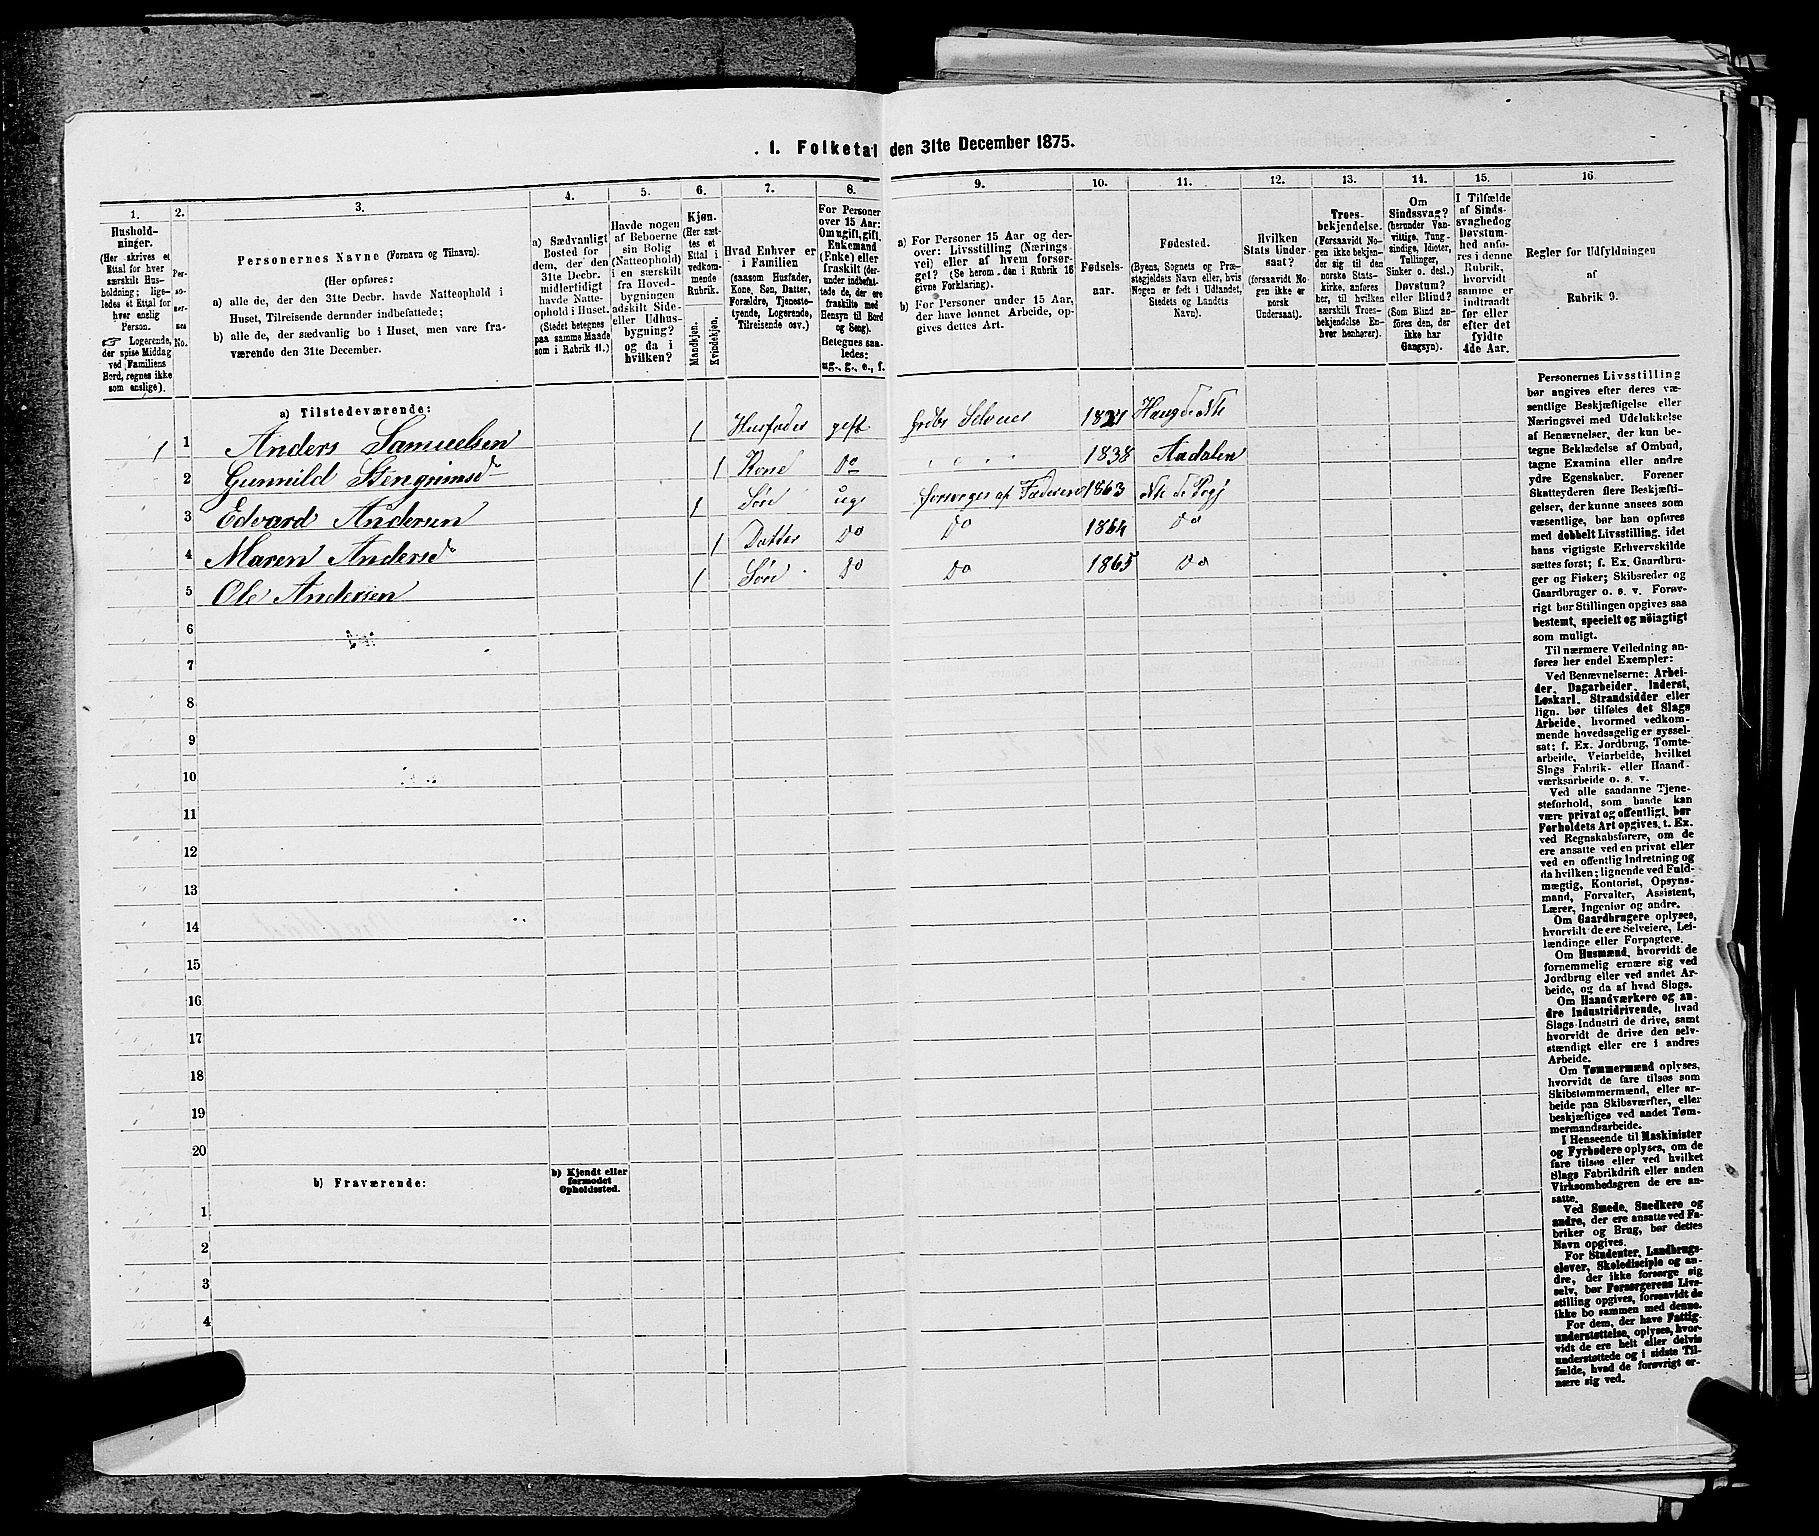 1. Folketal den 31te December 1875.
1. 2. 3. 4. 5. 6. 7. 8. 9. 10. 11. 12. 13. 14. 15. 16
Hushold-
ninger.
(Her skrives et
Ettal for hver
særskilt Hus-
holdning; lige-
ledes et Ettal for
hver enslig
Person.
☞ Logerende,
der spise Middag
ved Familiens
Bord, regnes ikke
som enslige).
Per-
so-
ner-
nes
No.
Personernes Navne (Fornavn og Tilnavn).
(Her opføres:
a) alle de, der den 31te Decbr. havde Natteophold i
Huset, Tilreisende derunder indbefattede;
b) alle de, der sædvanlig bo i Huset, men vare fra-
værende den 31te December.
a) Sædvanligt
Bosted for
dem, der den
31te Decbr.
midlertidigt
havde Natte-
ophold i Huset.
(Stedet betegnes
paa samme Maade
som i Rubrik 11.)
Havde nogen
af Beboerne
sin Bolig
(Natteophold)
i en særskilt
fra Hoved-
bygningen
adskilt Side-
eller Udhus-
bygning?
og da i
hvilken?
Kjøn.
(Her sæt-
tes et
Ettal i
vedkom-
mende
Rubrik.
Mandkjøn.
Kvindekjøn.
Hvad Enhver er
i Familien
(saasom Husfader,
Kone, Søn, Datter,
Forældre, Tjeneste-
tyende, Logerende,
Tilreisende osv.)
For Personer
over 15 Aar:
Om ugift, gift,
Enkemand
(Enke) eller
fraskilt (der-
under indbefat-
tede de, der ere
fraskilte med
Hensyn til Bord
og Seng).
Betegnes saa-
ledes:
ug., g., e., f.
a) For Personer 15 Aar og der-
over: Livsstilling (Nærings-
vei) eller af hvem forsør-
get? (Se herom den i Rubrik 16
givne Forklaring).
b) For Personer under 15 Aar,
der have lønnet Arbeide, op-
gives dettes Art.
Fødsels-
aar.
Fødested.
(Byens, Sognets og Præ-
stegjeldets Navn eller, hvis
Nogen er født i Udlandet,
Stedets og Landets
Navn).
Hvilken
Stats Under-
saat?
(forsaavidt No-
gen ikke er
norsk
Undersaat).
Troes-
bekjendelse.
(Forsaavidt No-
gen ikke bekjen-
der sig til den
norske Stats-
kirke, anføres
her, til hvilken
særskilt Troes-
bekjendelse En-
hver henhører).
Om
Sindssvag?
(herunder Van-
vittige, Tung-
sindige, Idioter,
Tullinger,
Sinker o. desl.)
Døvstum?
eller Blind?
(Som Blind an-
føres den, der
ikke har
Gangsyn).
I Tilfælde
af Sinds-
svaghed og
Døvstum-
hed anfø-
res i denne
Rubrik,
hvorvidt
samme er
indtraadt
før eller
efter det
fyldte
4de Aar.
Regler for Udfyldningen
af
Rubrik 9.
a) Tilstedeværende:
1 1 Anders Samuelsen 1 Husfader gift Selveier 1821
2 Gunnild Stengrimsd 1 Kone Do 1838 Aadalen
3 Edvard Andersen 1 Søn ug Forsørges af Faderen 1863
4 Maren Andersd 1 Datter Do Do 1864 Do
5 Ole Andersen 1 Søn Do Do 1865 Do
6
7
8
9
10
11
12
13
14
15
16
17
18
19
20
b) Fraværende:
b) Kjendt eller
formodet
Opholdssted.
1
2
3
4
Personernes Livsstilling
bør angives efter deres væ-
sentlige Beskjæftigelse eller
Næringsvei med Udelukkelse
af Benævnelser, der kun be-
tegne Beklædelse af Ombud,
tagne Examina eller andre
ydre Egenskaber. Forener
Skatteyderen flere Beskjæfti-
gelser, der kunne ansees som
væsentlige, bør han opføres
med dobbelt Livsstilling, idet
hans vigtigste Erhvervskilde
sættes først; f. Ex. Gaardbru-
ger og Fisker; Skibsreder og
Gaardbruger o. s. v. Forøv-
rigt bør Stillingen opgives saa
bestemt, specielt og nöiagtigt
som muligt.
Til nærmere Veiledning an-
føres her endel Exempler:
Ved Benævnelserne: Arbei-
der, Dagarbeider, Inderst,
Løskarl, Strandsidder eller
lign. bør tilføies det Slags
Arbeide, hvormed vedkom-
mende hovedsagelig er syssel-
sat; f. Ex. Jordbrug, Tomte-
arbeide, Veiarbeide, hvilket
Slags Fabrik- eller Haand-
værksarbeide o. s. v.
Ved alle saadanne Tjene-
steforhold, som baade kan
være privat og offentligt, bør
Forholdets Art opgives, t. Ex.
ved Regnskabsførere, om de
ere ansatte ved en privat eller
ved en offentlig Indretning og
da hvilken; lignende ved Fuld-
mægtig, Kontorist, Opsyns-
mand, Forvalter, Assistent,
Lærer, Ingeniør og andre.
Om Gaardbrugere oplyses,
hvorvidt de ere Selveiere, Lei-
lændinge eller Forpagtere.
Om Husmænd, hvorvidt de
fornemmelig ernære sig ved
Jordbrug eller ved andet Ar-
beide, og da af hvad Slags.
Om Haandværkere og an-
dre Industridrivende, hvad
Slags Industri de drive, samt
hvorvidt de drive den selv-
stændigt eller ere i andres
Arbeide.
Om Tømmermænd oplyses,
hvorvidt de fare tilsøs som
Skibstømmermænd, eller ar-
beide paa Skibsværfter, eller
beskjæftiges ved andet Tøm-
mermandsarbeide.
I Henseende til Maskinister
og Fyrbødere oplyses, om de
fare tilsøs eller ved hvilket
Slags Fabrikdrift eller anden
Virksomhedsgren de ere an-
satte.
Ved Smede, Snedkere og
andre, der ere ansatte ved Fa-
briker og Brug, bør dettes
Navn opgives.
For Studenter, Landbrugs-
elever, Skoledisciple og an-
dre, der ikke forsørge sig
selv, bør Forsørgerens Livs-
stilling opgives, forsaavidt de
ikke bo sammen med denne.
For dem, der have Fattig-
understøttelse, oplyses, hvor-
vidt de ere helt eller delvis
understøttede og i sidste Til-
fælde, hvad de forøvrigt er-
nære sig ved.